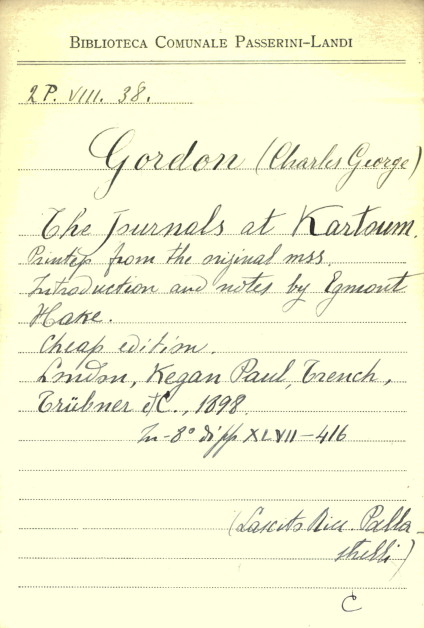 BIBLIOTECA COMUNALE PASSERINI-LANDI
2 P. VIII. 38.
Gordon (Charles George)
The Journals at Kartoum.
Printep from the original mss.
Introduction and notes by Egmont
Hake.
Cheap edition.
London, Kegan Paul, Trench,
Trübner &C., 1898.
In-8° di pp XLVII-416
(Lascito Ricc. Palla-
strelli)
C